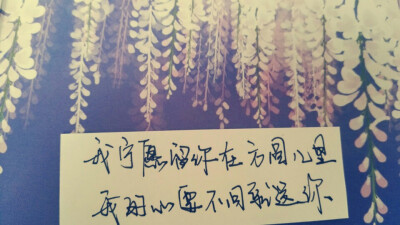 我宁愿留你在方圆几里
我的心要不回就送你、